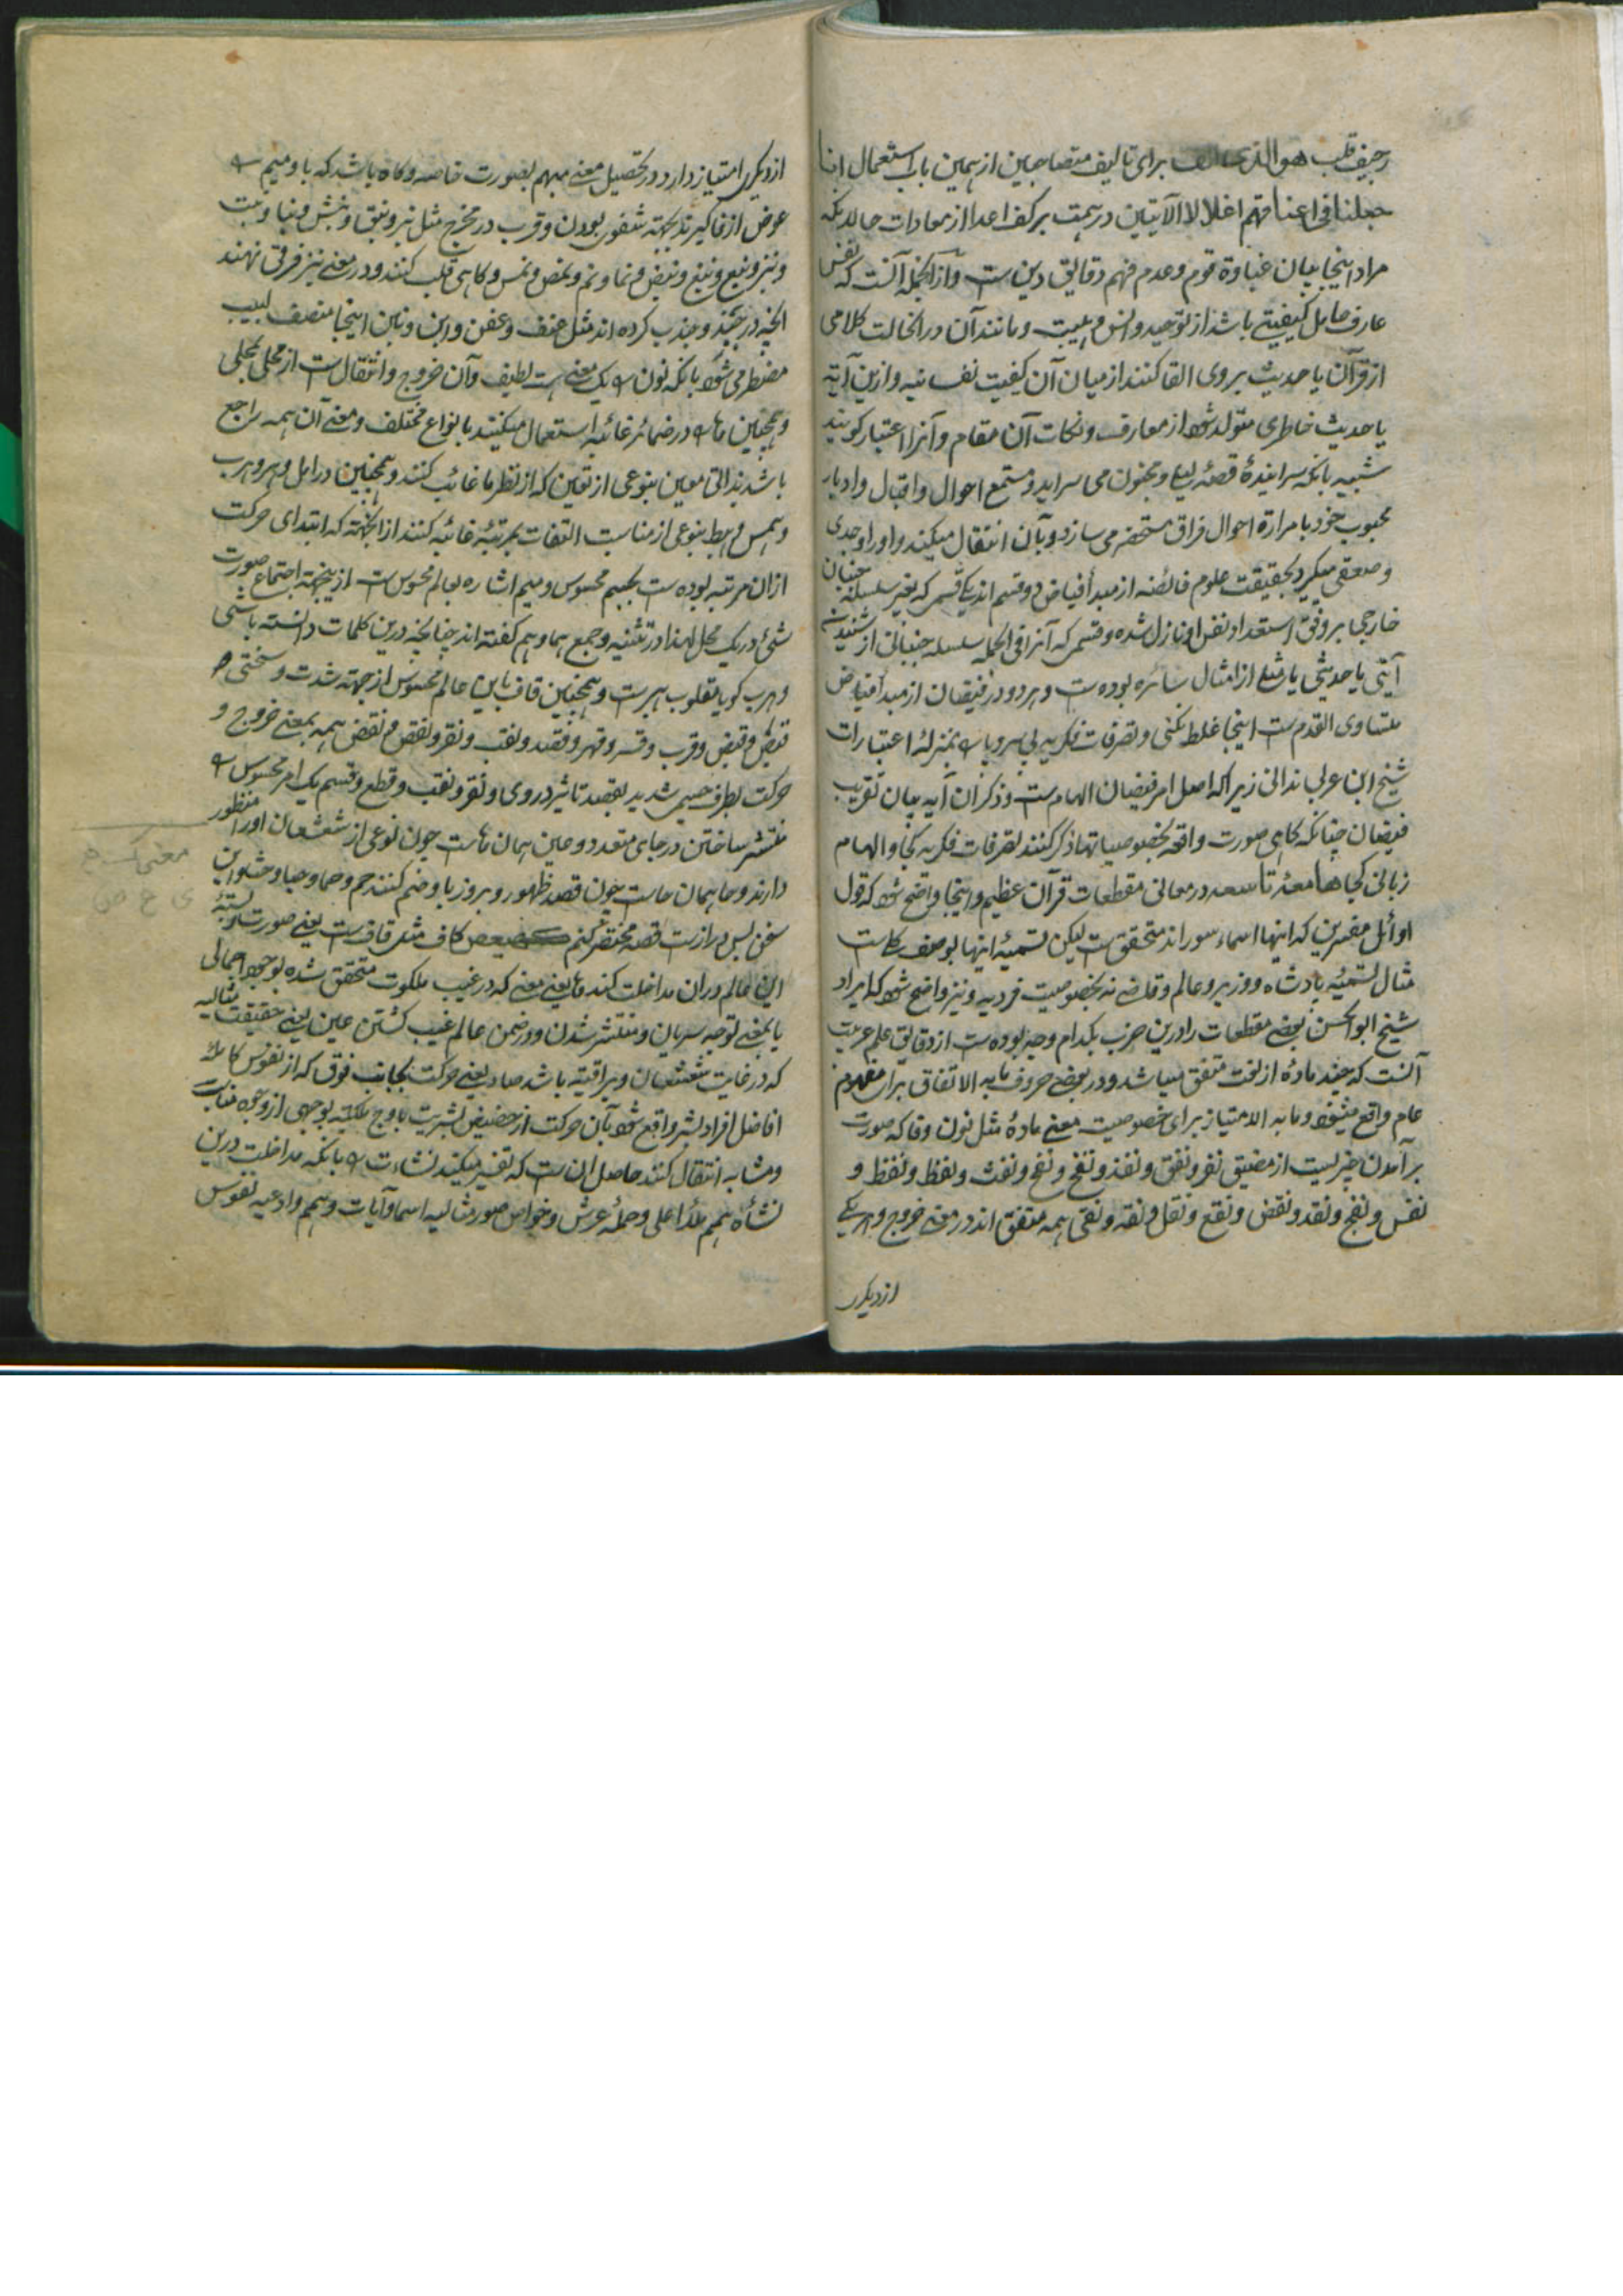 رجیف قلب هوالذی الف برای تالیف متصاحبین از همین باب استعمال انا
جعلنا فی اعناقهم اغلالا الآیتین در همت بر کف اعدا از معادات حالدیکه
مراد اینجا بیان غباوة قوم و عدم فهم دقایق دین ست و ازانجمله آنست که نفس
عارف حامل کیفیتے باشد از توحید و انس و هیبت و مانند آن درانحالت کلامی
از قرآن یا حدیث بروی القا کنند از میان آن کیفیت نفسانیه و ازین آیة
یا حدیث خاطری متولد شود از معارف و نکات آن مقام و آنرا اعتبار گویند
شبیه بانکه سرایندهٔ قصهٔ لیلی و مجنون می سراید و مستمع احوال و اقبال و ادبار
محبوب خود با مرارة احوال فراق مستحضر می سازد و بآن انتقال میکند و او را وجدی
و صعقی میگیرد بحقیقت علوم فائضه از مبدأ فیاض دو قسم اند یکے قسمی که بغیر سلسله جنبان
خارجی بر وفق استعداد نفس او نازل شده و قسمی که آنرا فی الجمله سلسله جنبانی از شنیدن
آیتی یا حدیثی یا مثلی از امثال سائره بوده ست و هر دو در فیضان از مبدأ فیاض
متساوی القدم ست اینجا غلط نکنی و تصرفات فکریه بی سر و پا را بمنزلهٔ اعتبارات
شیخ ابن عربی ندانی زیرا که اصل امر فیضان الهام ست و ذکر آن آیه بیان تقریب
فیضان چنانکه گاهی صورت واقعه بخصوصیاتها ذکر کنند تصرفات فکریه کجا و الهام
زبانی کجا هامعة تاسعه در معانی مقطعات قرآن عظیم و اینجا واضح شود که قول
اوائل مفسرین که اینها اسماء سور اند متحقق ست لیکن تسمیهٔ اینها بوصف کلی ست
مثال تسمیهٔ پادشاه و وزیر و عالم و قاضے نه بخصوصیت فردیه و نیز واضح شود که ایراد
شیخ ابو الحسن بعضے مقطعات را درین حزب بکدام وجه بوده ست از دقایق علم عربیت
آنست که چند مادهٔ از لغت متفق میباشد و در بعضے حروف ما به الاتفاق برای مفهوم
عام واقع میشود و ما به الامتیاز برای خصوصیت معنے مادهٔ مثل نون و فا که صورت
برآمدن چیزیست از مضیق نفر و نفق و نفذ و نفخ و نفح و نفث و نفظ و نفظ و
نفس و نفج و نفد و نفض و نفع و نفل و نفه و نفی همه متفق اند در معنے خروج و هر یکے
از دیگری
از دیگری امتیاز دارد در تحصیل معنے مبهم بصورت خاصه و گاه باشد که با و میم را
عوض از فا گیرند بجهة شفوی بودن و قرب در مخرج مثل نبر و نبق و نبش و نبا و نبت
و نبز و نبع و نبغ و نبض و نما و نم و نمص و نمس و گاهی قلب کنند و در معنے نیز فرقی نهند
الخ در جبذ و جذب کرده اند مثل عنف و عفن و ابن و نابن اینجا منصف لبیب
مضطر می شود بانکه نون را یک معنے هست لطیف و آن خروج و انتقال ست از محلی بمحلی
و همچنین ها را در ضمائر غائبه استعمال میکنند بانواع مختلف و معنے آن همه راجع
باشد بذاتی معین بنوعی از تعین که از نظر ما غائب کنند و همچنین در اهل و هر و هرب
و همس و هبط بنوعی از مناسبت التفات بمرتبهٔ غائبه کنند ازانجهة که ابتدای حرکت
ازان مرتبه بوده ست بجسم محسوس و میم اشاره بعالم محسوس ست ازینجهة اجتماع صورت
شئ در یک محل لهذا در تثنیه و جمع هما و هم گفته اند چنانچه درین کلمات دانسته باشی
و هرب گویا مقلوب هبرست و همچنین قاف باین عالم محسوس از جهة شدت و سختی
قبض و قبض و قرب و قسر و قهر و فقد و نقب و نقر و نقص و نقض همه بمعنے خروج و
حرکت بطرف جسم شدید بقصد تاثیر در وی و نقر و نقب و قطع و قسم یک امر محسوس را
منتشر ساختن در جای متعدد و عین همان هاست چون نوعی از تشعشع آن او را منظور
دارند و حا همان هاست چون قصد ظهور و بروز با و ضم کنند حم و حما و حیا و حشوازین
سخن بس درازست قصه مختصر کنم کهیعص کاف مثل قاف ست یعنے صورت بستهٔ
این عالم دران مداخلت کند ها یعنے معنے که در غیب ملکوت متحقق شده بوجود اجمالی
یا بمعنے توجه سریان و منتشر شدن و در ضمن عالم غیب گشتن عین یعنے حقیقت مثالیه
که در غایت تشعشعان و براقیته باشد صاد یعنے حرکت بجانب فوق که از نفوس کامله
افاضل افراد بشر واقع شود بآن حرکت از حضیض بشریت باوج ملکیة بوجهی از وجوه مناسب
و مشابه انتقال کنند حاصل آن ست که تفسیر میکنند نشاءت را بانکه مداخلت درین
نشأة همم ملأ اعلی و حملهٔ عرش و خواص صور مثالیه اسما و آیات و همم و ادعیه نفوس
معنی
ی ع ص